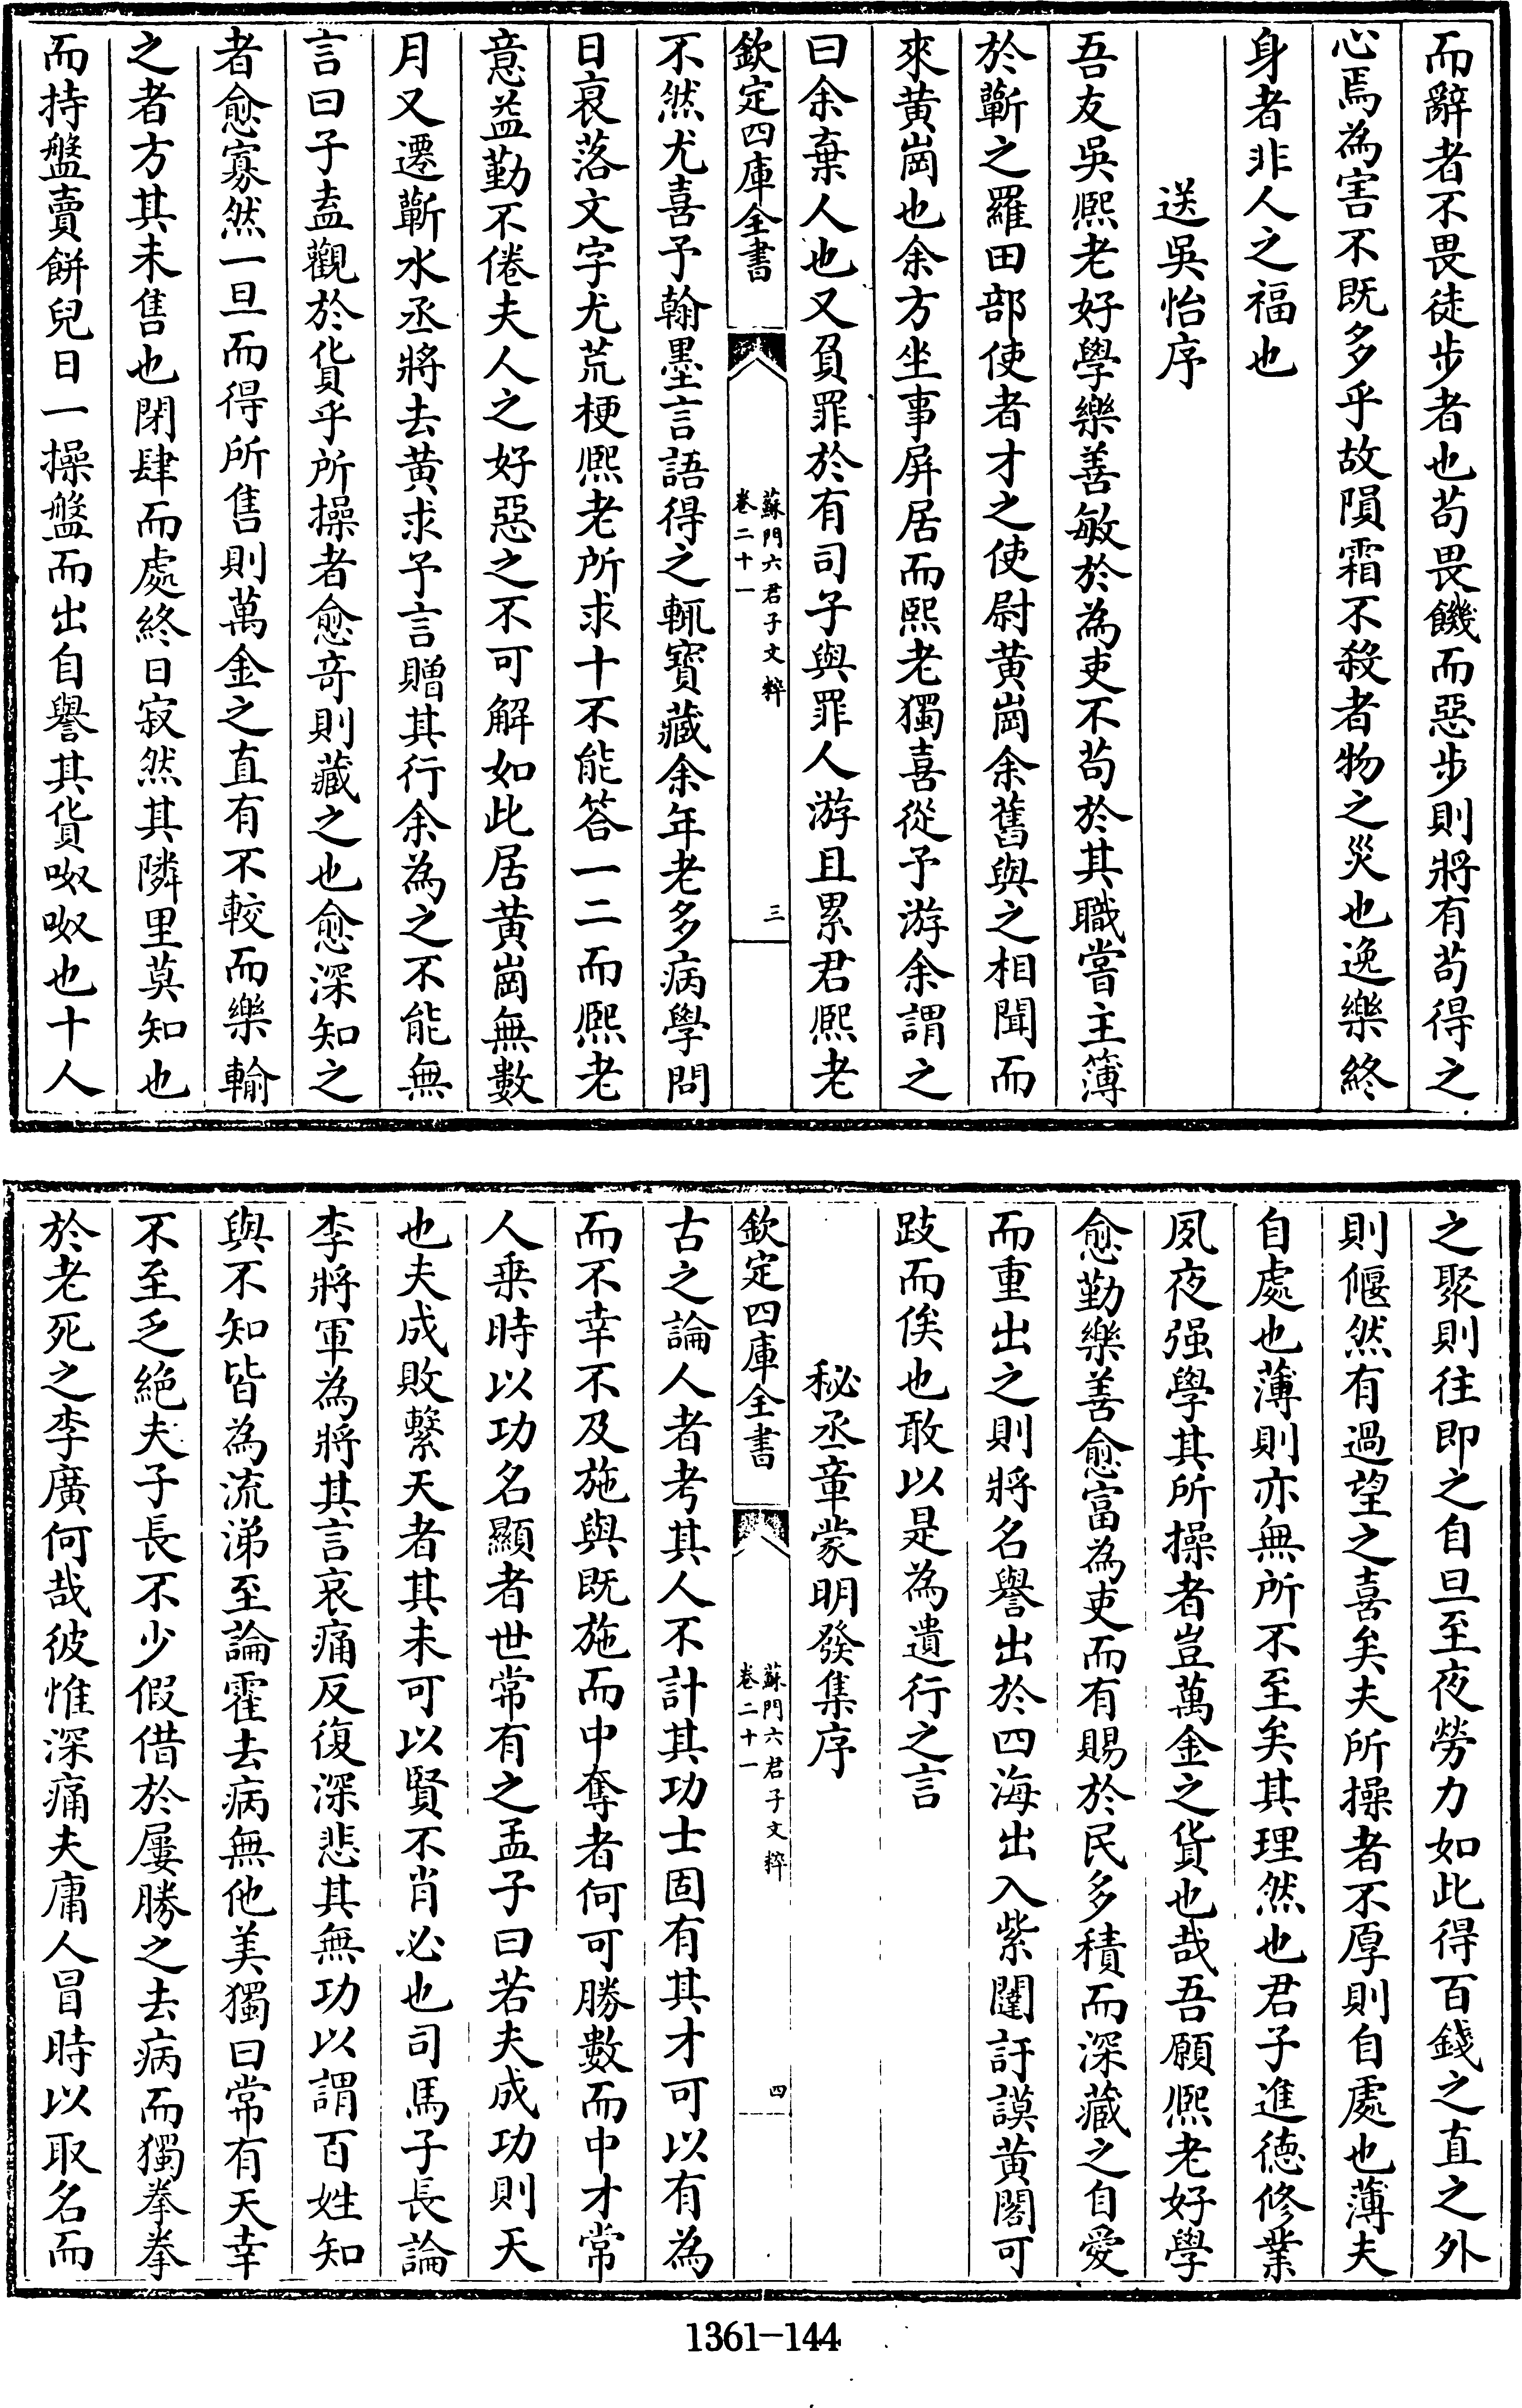 而辭者不畏徒步者也茍畏饑而惡步則將有茍得之
心焉為害不既多乎故隕霜不殺者物之災也逸樂終
身者非人之福也
送吳怡序
吾友吳熈老好學樂善敏於為吏不茍於其職嘗主簿
於蘄之羅田部使者才之使尉黄崗余舊與之相聞而
來黄崗也余方坐事屏居而熈老獨喜從予游余謂之
曰余棄人也又負罪於有司子與罪人游且累君熈老
欽定四庫全書
蘇門六君子文粹
卷二十一
三
不然尤喜予翰墨言語得之輒寳藏余年老多病學問
日衰落文字尤荒梗熈老所求十不能答一二而熈老
意益勤不倦夫人之好惡之不可解如此居黄崗無數
月又遷蘄水丞將去黄求予言贈其行余為之不能無
言曰子盍觀於貨乎所操者愈竒則藏之也愈深知之
者愈寡然一旦而得所售則萬金之直有不較而樂輸
之者方其未售也閉肆而處終日寂然其隣里莫知也
而持盤賣餅兒日一操盤而出自譽其貨呶呶也十人
之聚則往即之自旦至夜勞力如此得百錢之直之外
則偃然有過望之喜矣夫所操者不厚則自處也薄夫
自處也薄則亦無所不至矣其理然也君子進德修業
夙夜强學其所操者豈萬金之貨也哉吾願熈老好學
愈勤樂善愈富為吏而有賜於民多積而深藏之自愛
而重出之則將名譽出於四海出入紫闥訏謨黄閣可
跂而俟也敢以是為遺行之言
秘丞章蒙明發集序
欽定四庫全書
蘇門六君子文粹
卷二十一
四
古之論人者考其人不計其功士固有其才可以有為
而不幸不及施與既施而中奪者何可勝數而中才常
人乗時以功名顯者世常有之孟子曰若夫成功則天
也夫成敗繫天者其未可以賢不肖必也司馬子長論
李將軍為將其言哀痛反復深悲其無功以謂百姓知
與不知皆為流涕至論霍去病無他美獨曰常有天幸
不至乏絶夫子長不少假借於屢勝之去病而獨拳拳
於老死之李廣何哉彼惟深痛夫庸人冒時以取名而
1361-144